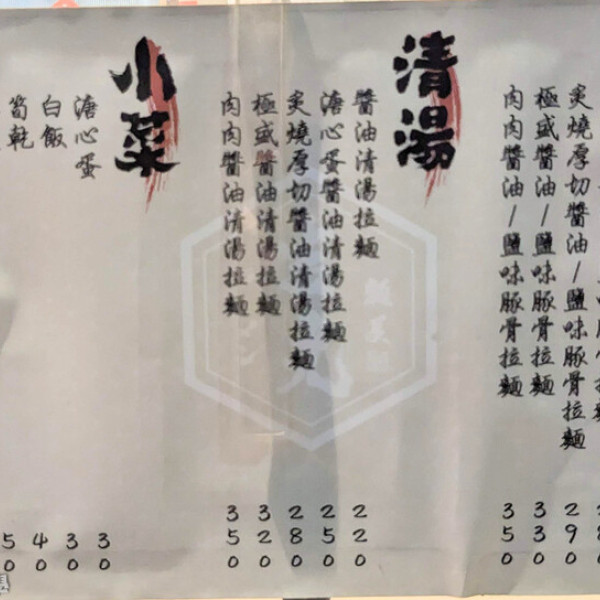 炙燒厚切醬油/鹽味豚骨拉麵 29
極盛醬油/鹽味豚骨拉麵 330
肉肉醬油/鹽味豚骨拉麵 350
清湯
醬油清湯拉麵 220
溏心蛋醬油清湯拉麵 250
炙燒厚切醬油清湯拉麵 280
極盛醬油清湯拉麵 320
肉肉醬油清湯拉麵 350
小菜
溏心蛋 30
白飯 30
筍乾 40
50